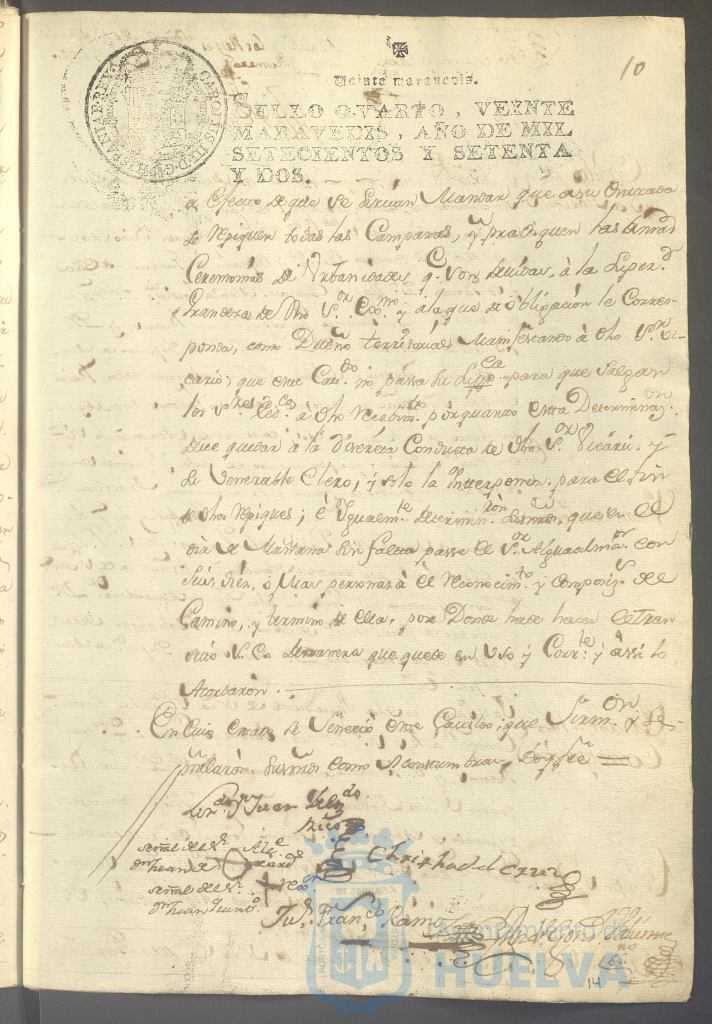 10
Veinte maravedis.
SELLO QVARTO, VEINTE
MARAVEDIS, AÑO DE MIL
SETECIENTOS Y SETENTA
Y DOS.
CAROLUS III D G HISPANIAR REX
a efecto de que se sirvan Mandar que a su Entrada
se repiquen todas las Campanas, y practiquen las
Ceremonias de Urbanidades q. son devidas, à la
Grandeza de dho S.or Exc.mo y a la que de obligacion le Corres-
ponda, como Dueño territorial, Manifestando à dho S.or Vi-
cario, que este Cav.do no passa para que Salgan
los S.res à dho Recibim.to por quanto esta Determinaz.on
dice quedar à la discreta Conducta de dho S.or Vicario y
su Venerable Clero, y solo la interponen para el fin
de dhos repiques; è Igualm.te determin.ron sus mrds, que en el
dia de Mañana sin falta passe el S.or Alguacil ma.or con
seis, diez, o mas personas à el reconocim.to y composiz.on del
Camino, y termino de ella, por Donde ha de hacer el tran
sito S. E. de manera que quede en uso y Corr.te y assi lo
Acordaron.
En Cuio estado se feneciò este Cavildo, que firm.on y se-
ñalaron sus mrds como Acostumbran, doy fee
Lizen.do Juan
señal de el S.r Alc.e
Dn Juan
Christobal
señal de el S.r
Dn Juan
Ju.n Fran.co Ramo
Ayuntamiento de
HUELVA
14